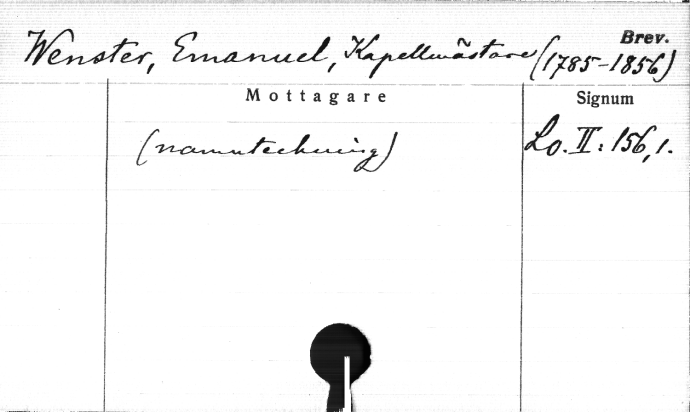 Brev.
Wenster, Emanuel, Kapellmästare (1785-1856)
Mottagare Signum
(namnteckning) Lo. II: 156,1.